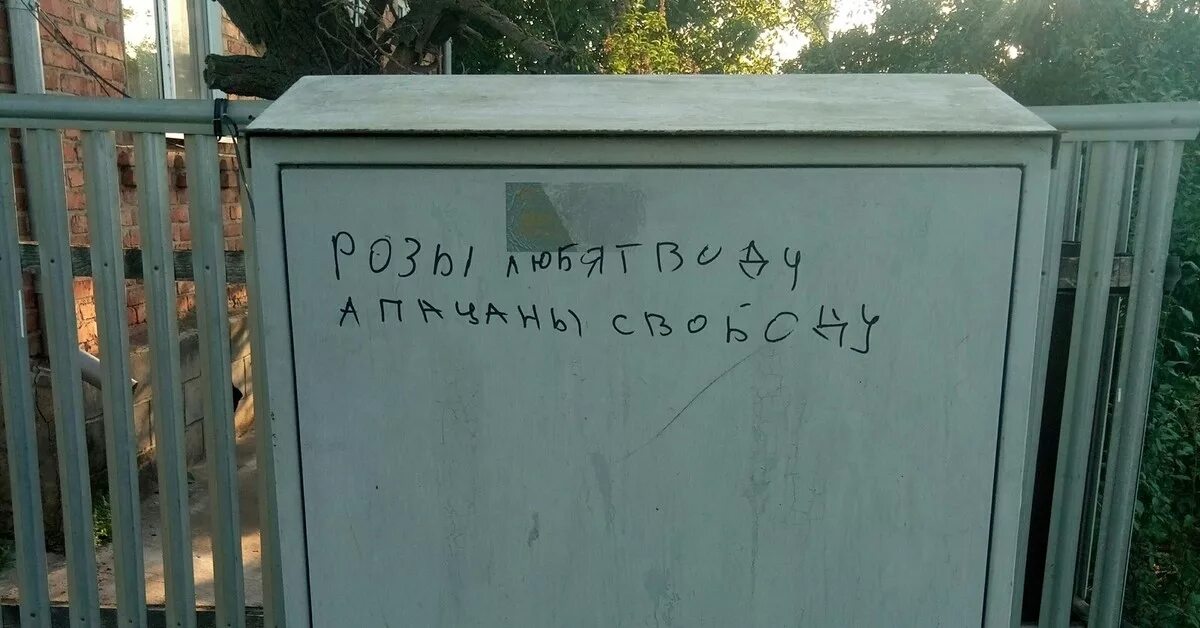 РОЗЫ ЛЮБЯТ ВОДУ
А ПАЦАНЫ СВОБОДУ